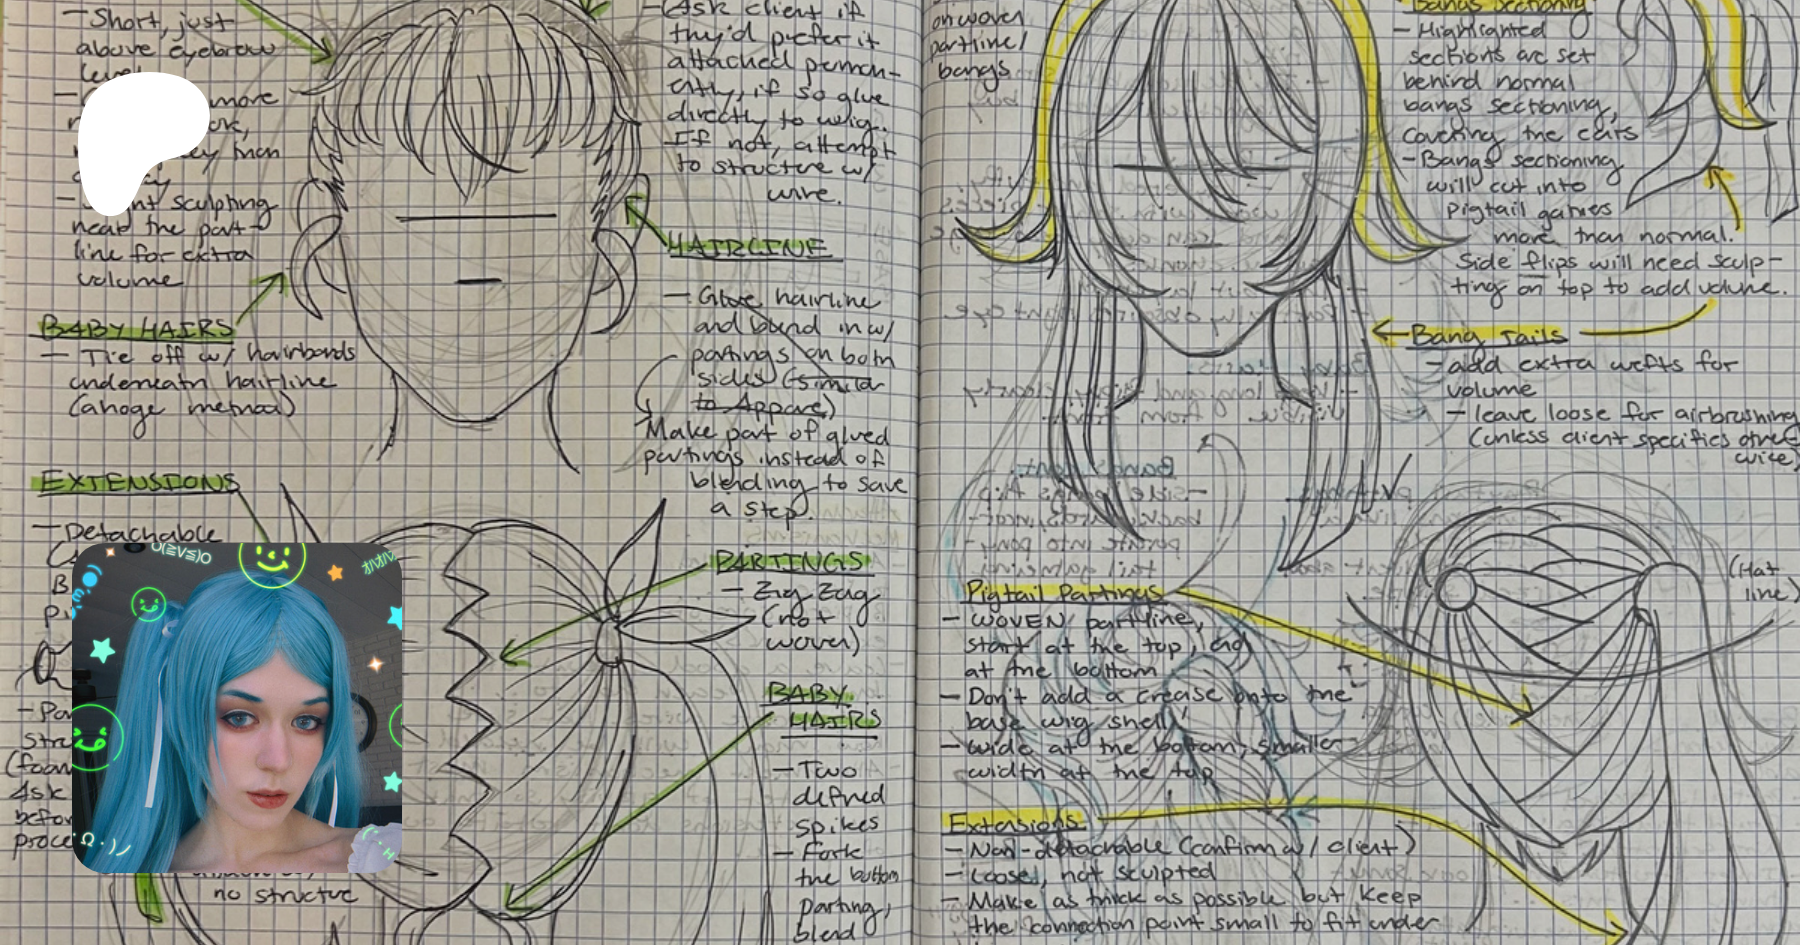 - Short, just
above eyebrow
level
more
- Slight sculpting
near the part-
line for extra
volume
BABY HAIRS
- Tie off w/ hairbands
underneath hairline
(ahoge method)
EXTENSIONS
- Detachable
no structure
- Ask client if
they'd prefer it
attached perman-
ently, if so glue
directly to wig.
If not, attempt
to structure w/
wire.
HAIRLINE
- Glue hairline
and blend in w/
partings on both
sides (similar
to Appare)
Make part of glued
partings instead of
blending to save
a step.
PARTINGS
- Zig Zag
(not
woven)
BABY
HAIRS
- Two
defined
spikes
- Fork
the bottom
parting,
blend
on woven
partline/
bangs
Bangs Sectioning
- Highlighted
sections are set
behind normal
bangs sectioning,
covering the ears
- Bangs sectioning
will cut into
pigtail gathers
more than normal.
Side flips will need sculp-
ting on top to add volume.
Bang Tails
- add extra wefts for
volume
- leave loose for airbrushing
(unless client specifies other
wise)
(Hat
line)
Pigtail Partings
- WOVEN partline,
start at the top, end
at the bottom
- Don't add a crease onto the
base wig shell!
- wide at the bottom, smaller
width at the top
Extensions
- Non-detachable (confirm w/ client)
- Loose, not sculpted
- Make as thick as possible but keep
the connection point small to fit under